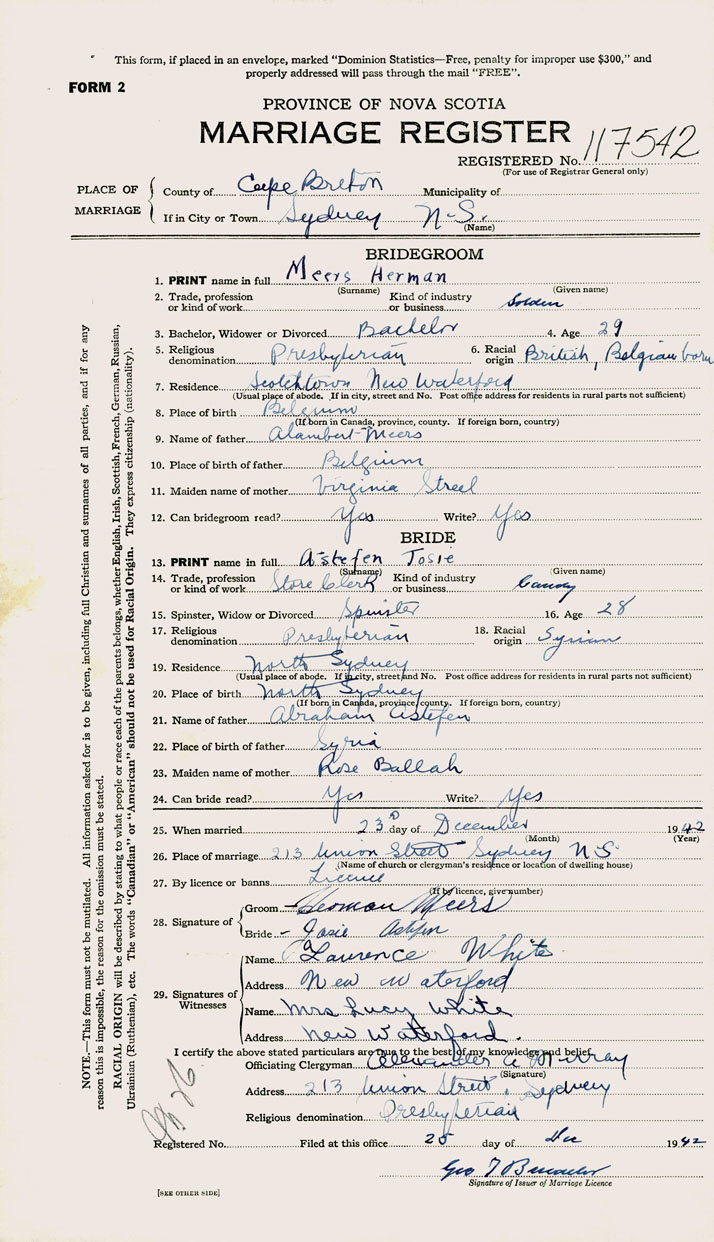 This form, if placed in an envelope, marked “Dominion Statistics—Free, penalty for improper use $300,” and
properly addressed will pass through the mail “FREE”.
FORM 2
PROVINCE OF NOVA SCOTIA
MARRIAGE REGISTER
REGISTERED No. 117542
(For use of Registrar General only)
PLACE OF MARRIAGE
County of Cape Breton Municipality of
If in City or Town Sydney N-S.
(Name)
BRIDEGROOM
1. PRINT name in full Meers Herman
(Surname) (Given name)
2. Trade, profession or kind of work Kind of industry or business Soldier
3. Bachelor, Widower or Divorced Bachelor 4. Age 29
5. Religious denomination Presbyterian 6. Racial origin British, Belgian born
7. Residence Scotchtown New Waterford
(Usual place of abode. If in city, street and No. Post office address for residents in rural parts not sufficient)
8. Place of birth Belgium
(If born in Canada, province, county. If foreign born, country)
9. Name of father Alambert Meers
10. Place of birth of father Belgium
11. Maiden name of mother Virginia Streel
12. Can bridegroom read? Yes Write? Yes
BRIDE
13. PRINT name in full Astefen Josie
(Surname) (Given name)
14. Trade, profession or kind of work Store Clerk Kind of industry or business Candy
15. Spinster, Widow or Divorced Spinster 16. Age 28
17. Religious denomination Presbyterian 18. Racial origin Syrian
19. Residence North Sydney
(Usual place of abode. If in city, street and No. Post office address for residents in rural parts not sufficient)
20. Place of birth North Sydney
(If born in Canada, province, county. If foreign born, country)
21. Name of father Abraham Astefen
22. Place of birth of father Syria
23. Maiden name of mother Rose Ballah
24. Can bride read? Yes Write? Yes
25. When married 23rd day of December 1942
(Month) (Year)
26. Place of marriage 213 Union Street Sydney N-S
(Name of church or clergyman's residence or location of dwelling house)
27. By licence or banns Licence
(If by licence, give number)
28. Signature of
Groom Herman Meers
Bride Josie Astefen
29. Signatures of Witnesses
Name Laurence White
Address New Waterford
Name Mrs Lucy White
Address New Waterford.
I certify the above stated particulars are true to the best of my knowledge and belief.
Officiating Clergyman Alexander A Murray
(Signature)
Address 213 Union Street, Sydney
Religious denomination Presbyterian
Registered No. Filed at this office 25 day of Dec 1942
Geo T
Signature of Issuer of Marriage Licence
[SEE OTHER SIDE]
NOTE.—This form must not be mutilated. All information asked for is to be given, including full Christian and surnames of all parties, and if for any
reason this is impossible, the reason for the omission must be stated.
RACIAL ORIGIN will be described by stating to what people or race each of the parents belongs, whether English, Irish, Scottish, French, German, Russian,
Ukrainian (Ruthenian), etc. The words “Canadian” or “American” should not be used for Racial Origin. They express citizenship (nationality).